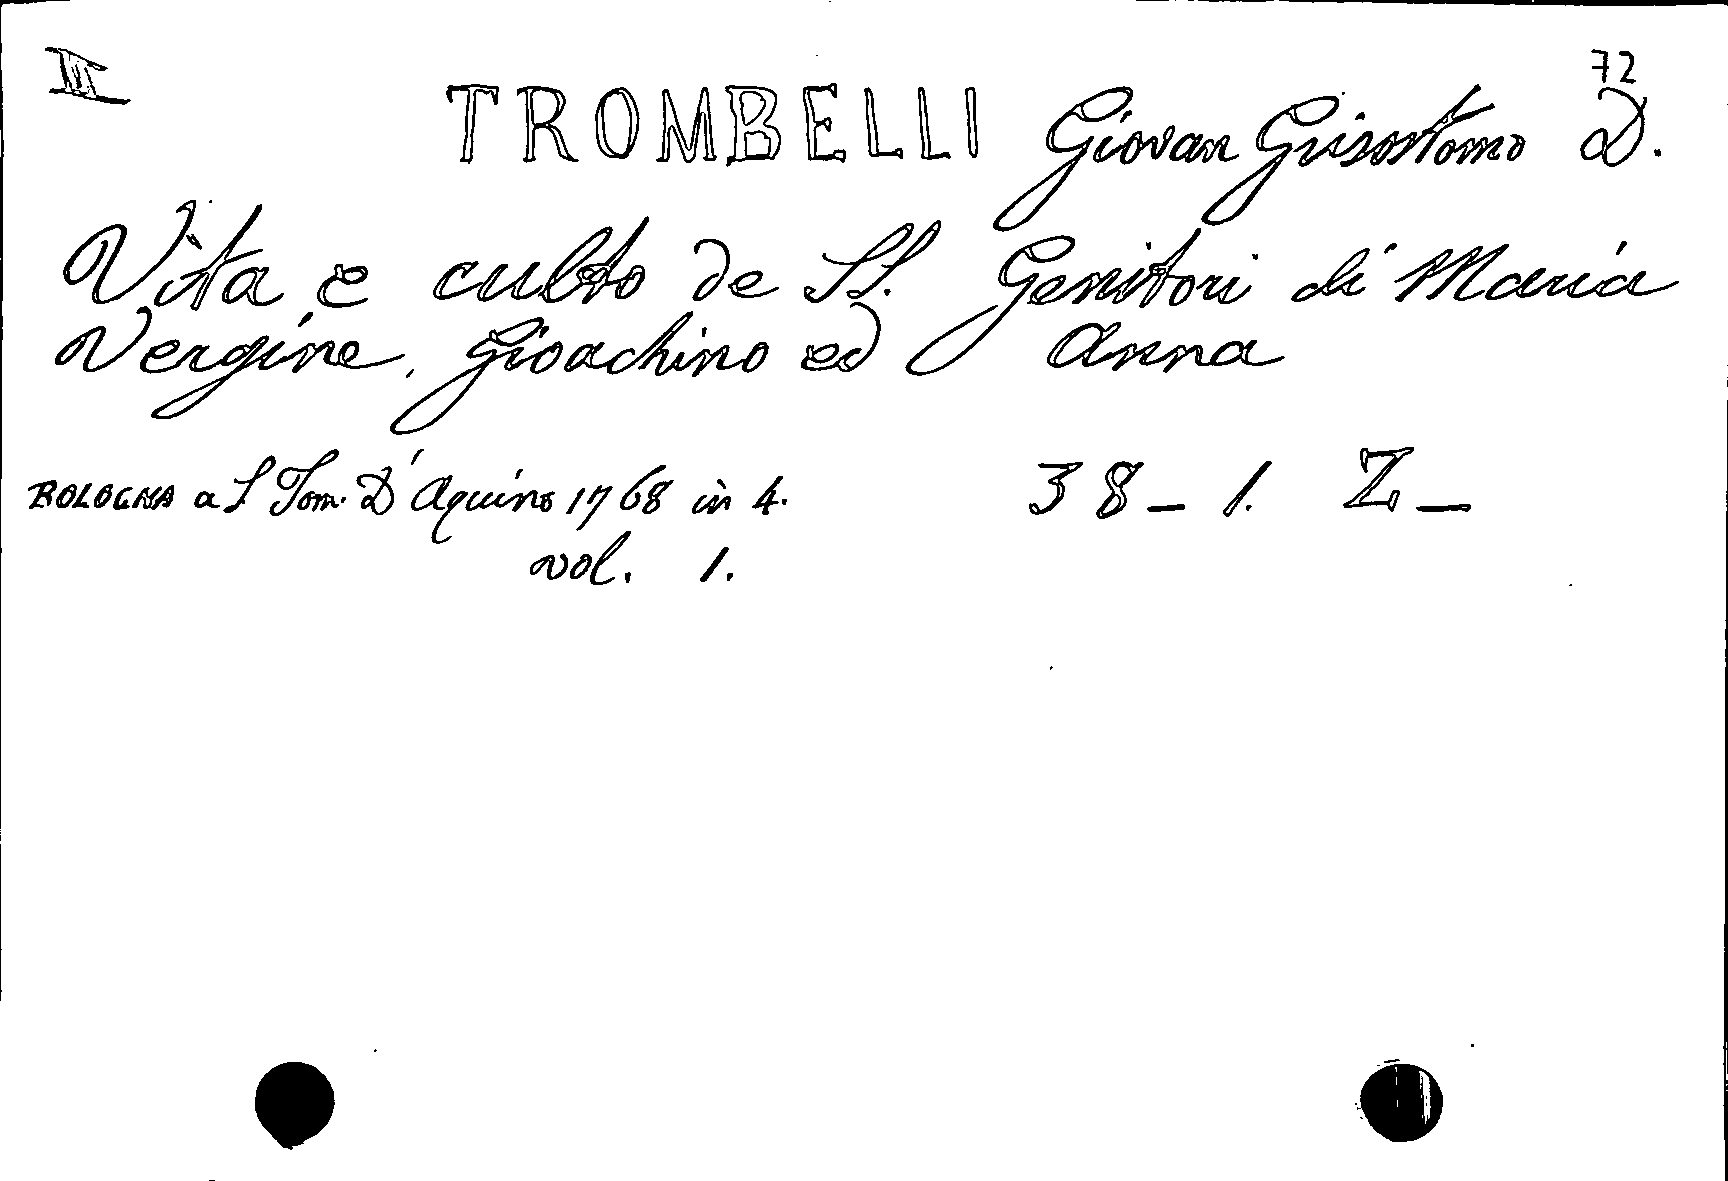 III
72
TROMBELLI Giovan Grisostomo D.
Vita e culto de SS. Genitori di Maria
Vergine, Gioachino ed Anna
BOLOGNA a S Tom. D'Aquino 1768 in 4. 38 - 1. Z -
vol. 1.